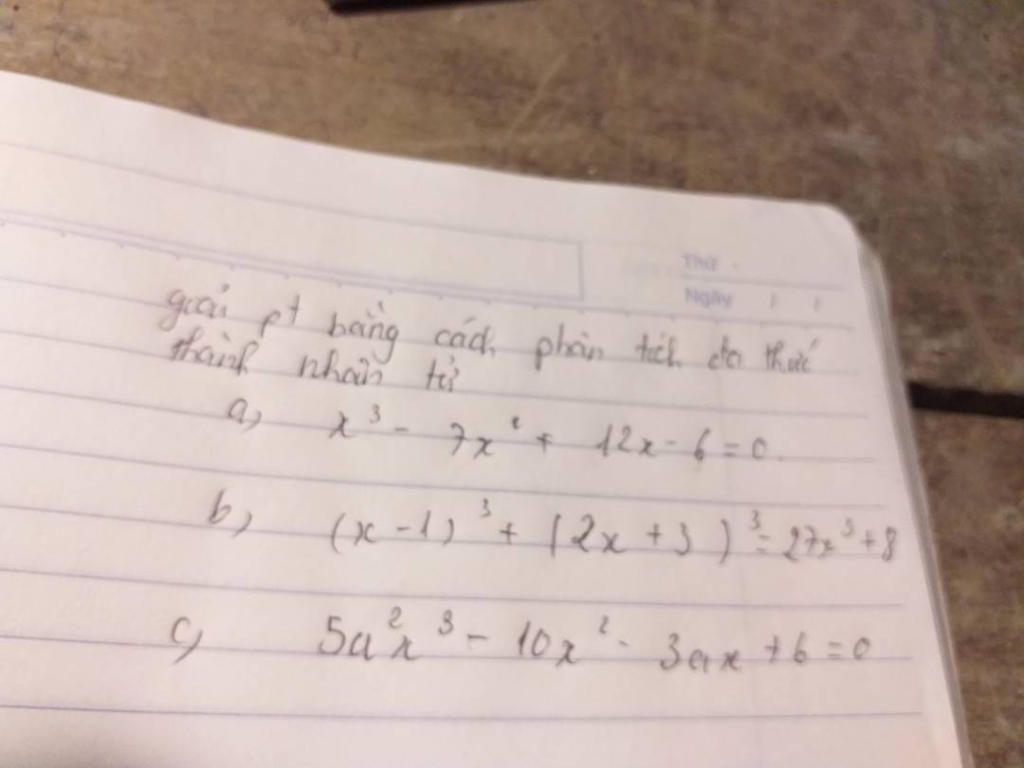 Thứ
Ngày
giải pt bằng cách phân tích đa thức
thành nhân tử
a, x³ - 7x² + 12x - 6 = 0
b, (x - 1)³ + (2x + 3)³ = 27x³ + 8
c, 5a²x³ - 10x² - 3ax + 6 = 0